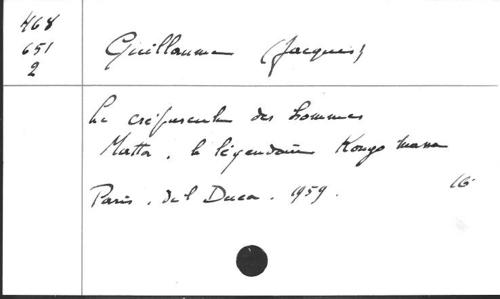 468
651
2
Guillaume (Jacques)
Le crépuscule des hommes
Matta, le légendaire Kongo Massa
Paris. del Duca. 1959. 16